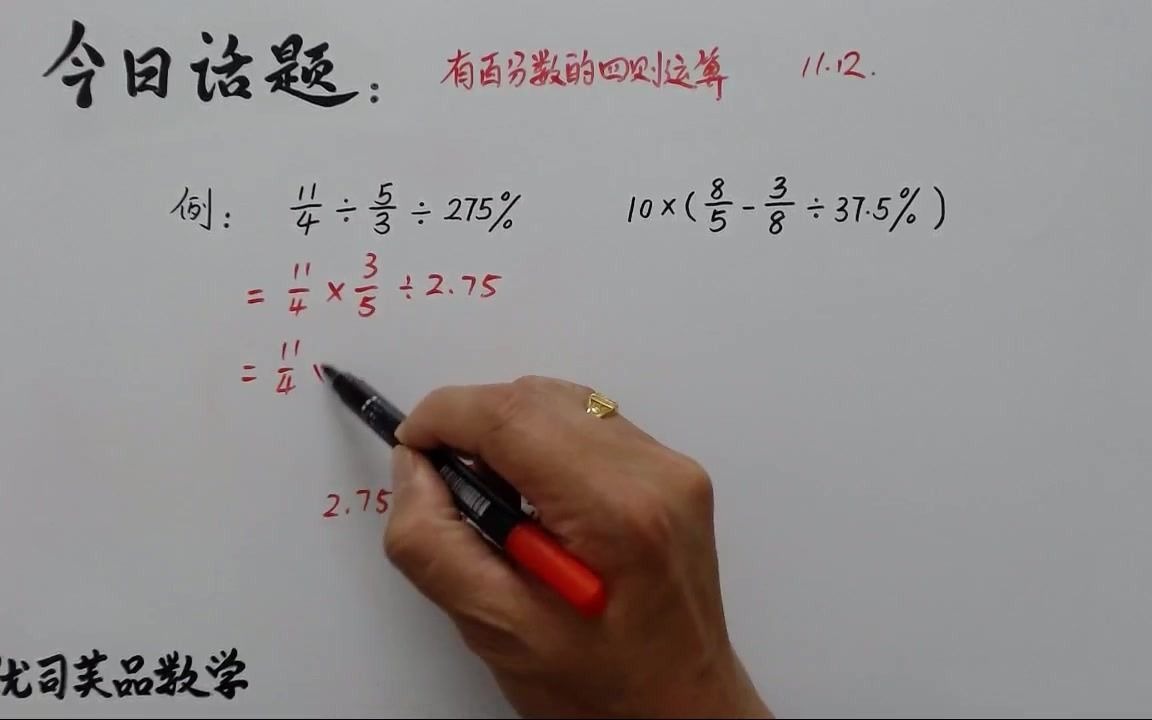 今日话题：
有百分数的四则运算 11.12.
例： 11/4 ÷ 5/3 ÷ 275% 10×(8/5 - 3/8 ÷ 37.5%)
= 11/4 × 3/5 ÷ 2.75
= 11/4
2.75
优司芙品数学